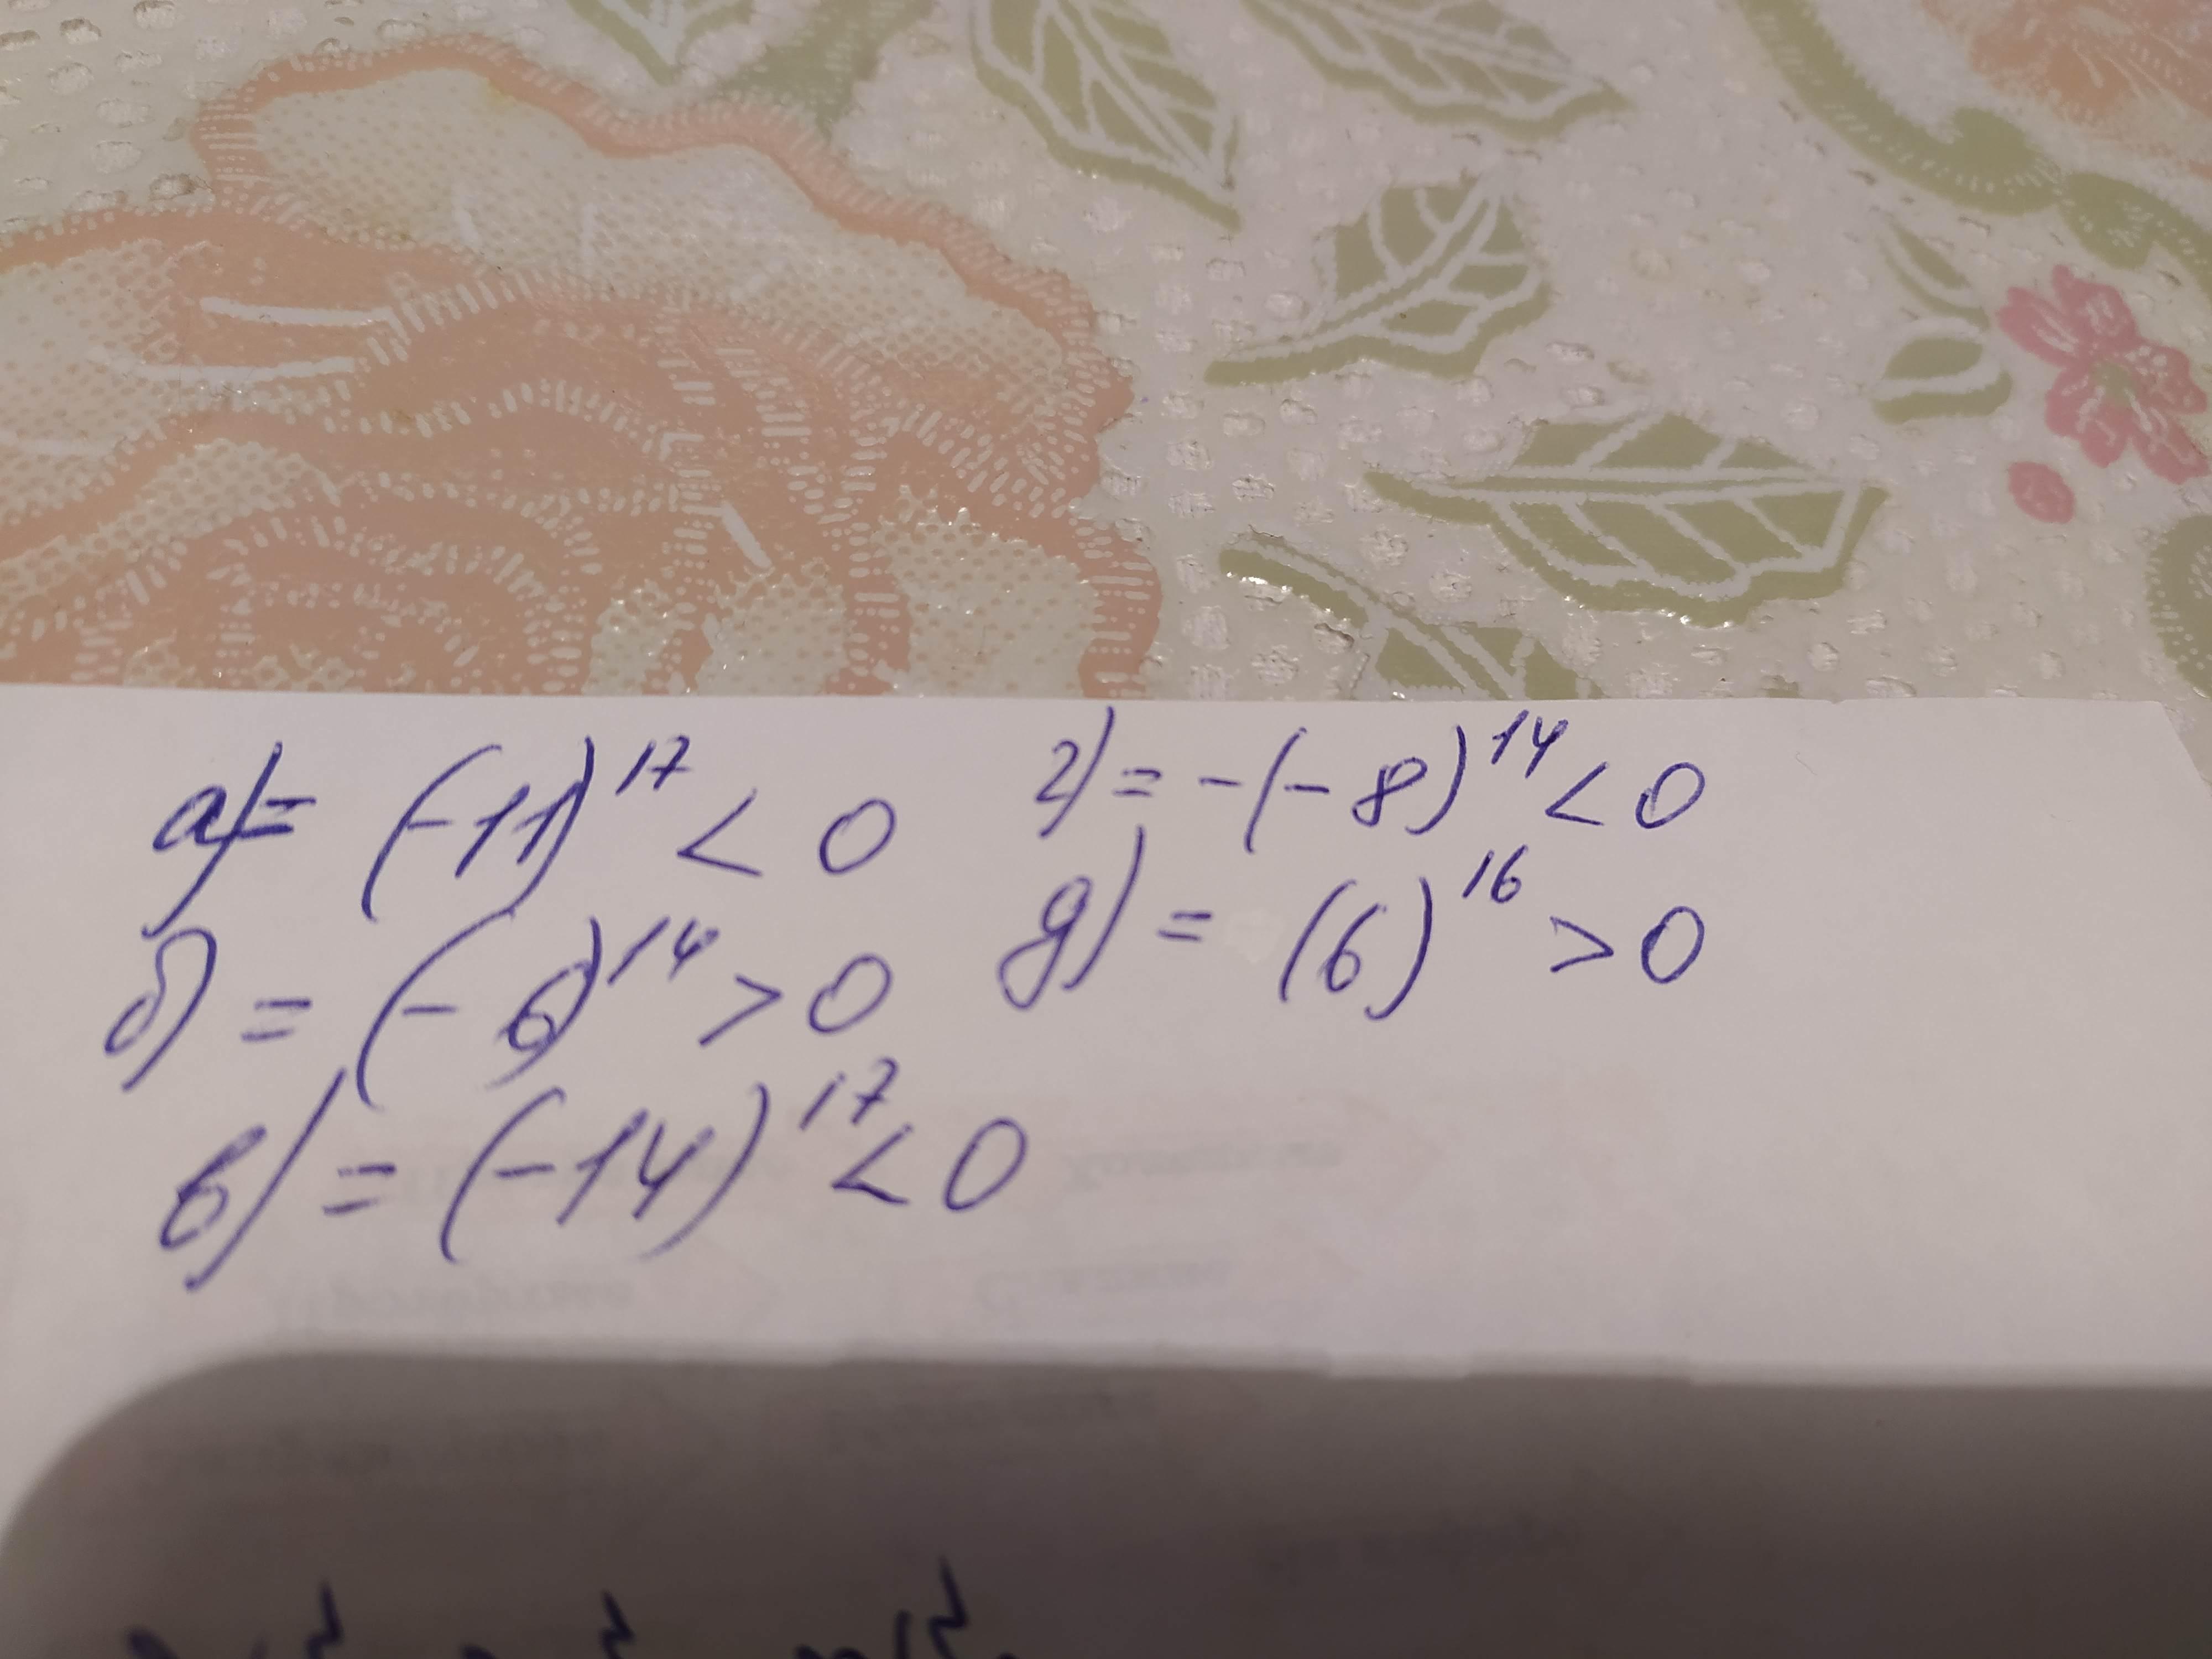 а) = (-11)¹⁷ < 0
б) = (-6)¹⁴ > 0
в) = (-14)¹⁷ < 0
г) = -(-8)¹⁴ < 0
д) = (6)¹⁶ > 0